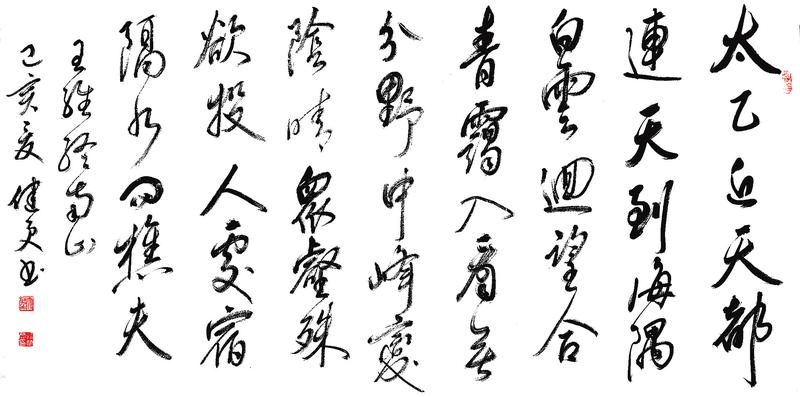 太乙近天都
連天到海隅
白雲迴望合
青靄入看無
分野中峰變
陰晴眾壑殊
欲投人處宿
隔水問樵夫
王維終南山
己亥夏健书